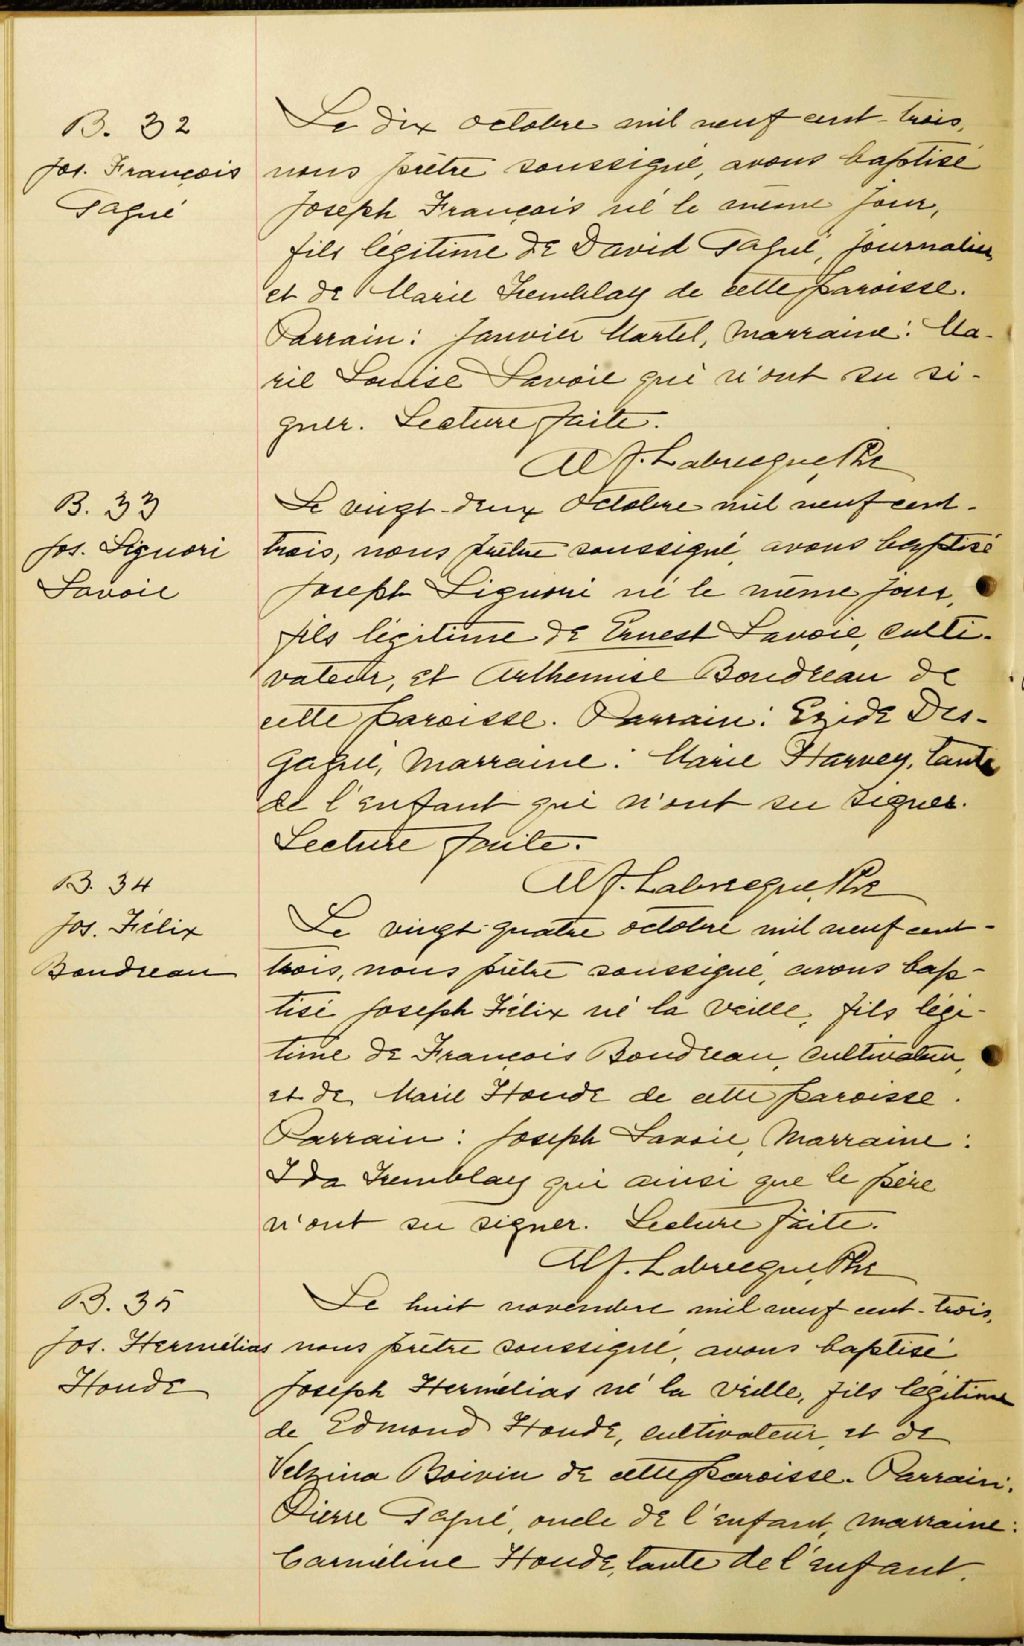 B. 32
Jos. François
Gagné
Le dix octobre mil neuf cent-trois,
nous prêtre soussigné, avons baptisé
Joseph François né le même jour,
fils légitime de David Gagné, journalier,
et de Marie Tremblay de cette paroisse.
Parrain: Janvier Martel, Marraine: Ma-
rie Louise Savoie qui n'ont su si-
gner. Lecture faite.
Alf. Labrecque, Ptre
B. 33
Jos. Liguori
Savoie
Le vingt-deux octobre mil neuf cent-
trois, nous prêtre soussigné, avons baptisé
Joseph Liguori né le même jour,
fils légitime de Ernest Savoie, culti-
vateur, et Arthemise Boudreau de
cette paroisse. Parrain: Ezide Des-
gagné, Marraine: Marie Harvey, tante
de l'enfant qui n'ont su signer.
Lecture faite.
Alf. Labrecque, Ptre
B. 34
Jos. Félix
Boudreau
Le vingt-quatre octobre mil neuf cent-
trois, nous prêtre soussigné, avons bap-
tisé Joseph Félix né la veille, fils légi-
time de François Boudreau, cultivateur,
et de Marie Houde de cette paroisse.
Parrain: Joseph Savoie, Marraine:
Ida Tremblay qui ainsi que le père
n'ont su signer. Lecture faite.
Alf. Labrecque, Ptre
B. 35
Jos. Hermélias
Houde
Le huit novembre mil neuf cent-trois,
nous prêtre soussigné, avons baptisé
Joseph Hermélias né la veille, fils légitime
de Edmond Houde, cultivateur, et de
Velzina Boivin de cette paroisse. Parrain:
Pierre Gagné, oncle de l'enfant, marraine:
Carméline Houde, tante de l'enfant.